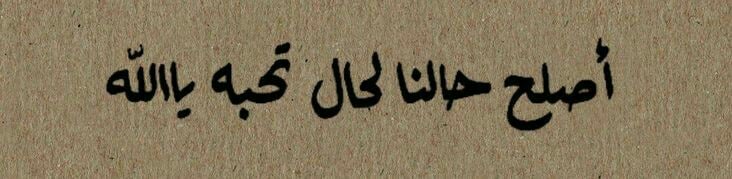 أصلح حالنا لحال تحبه ياالله